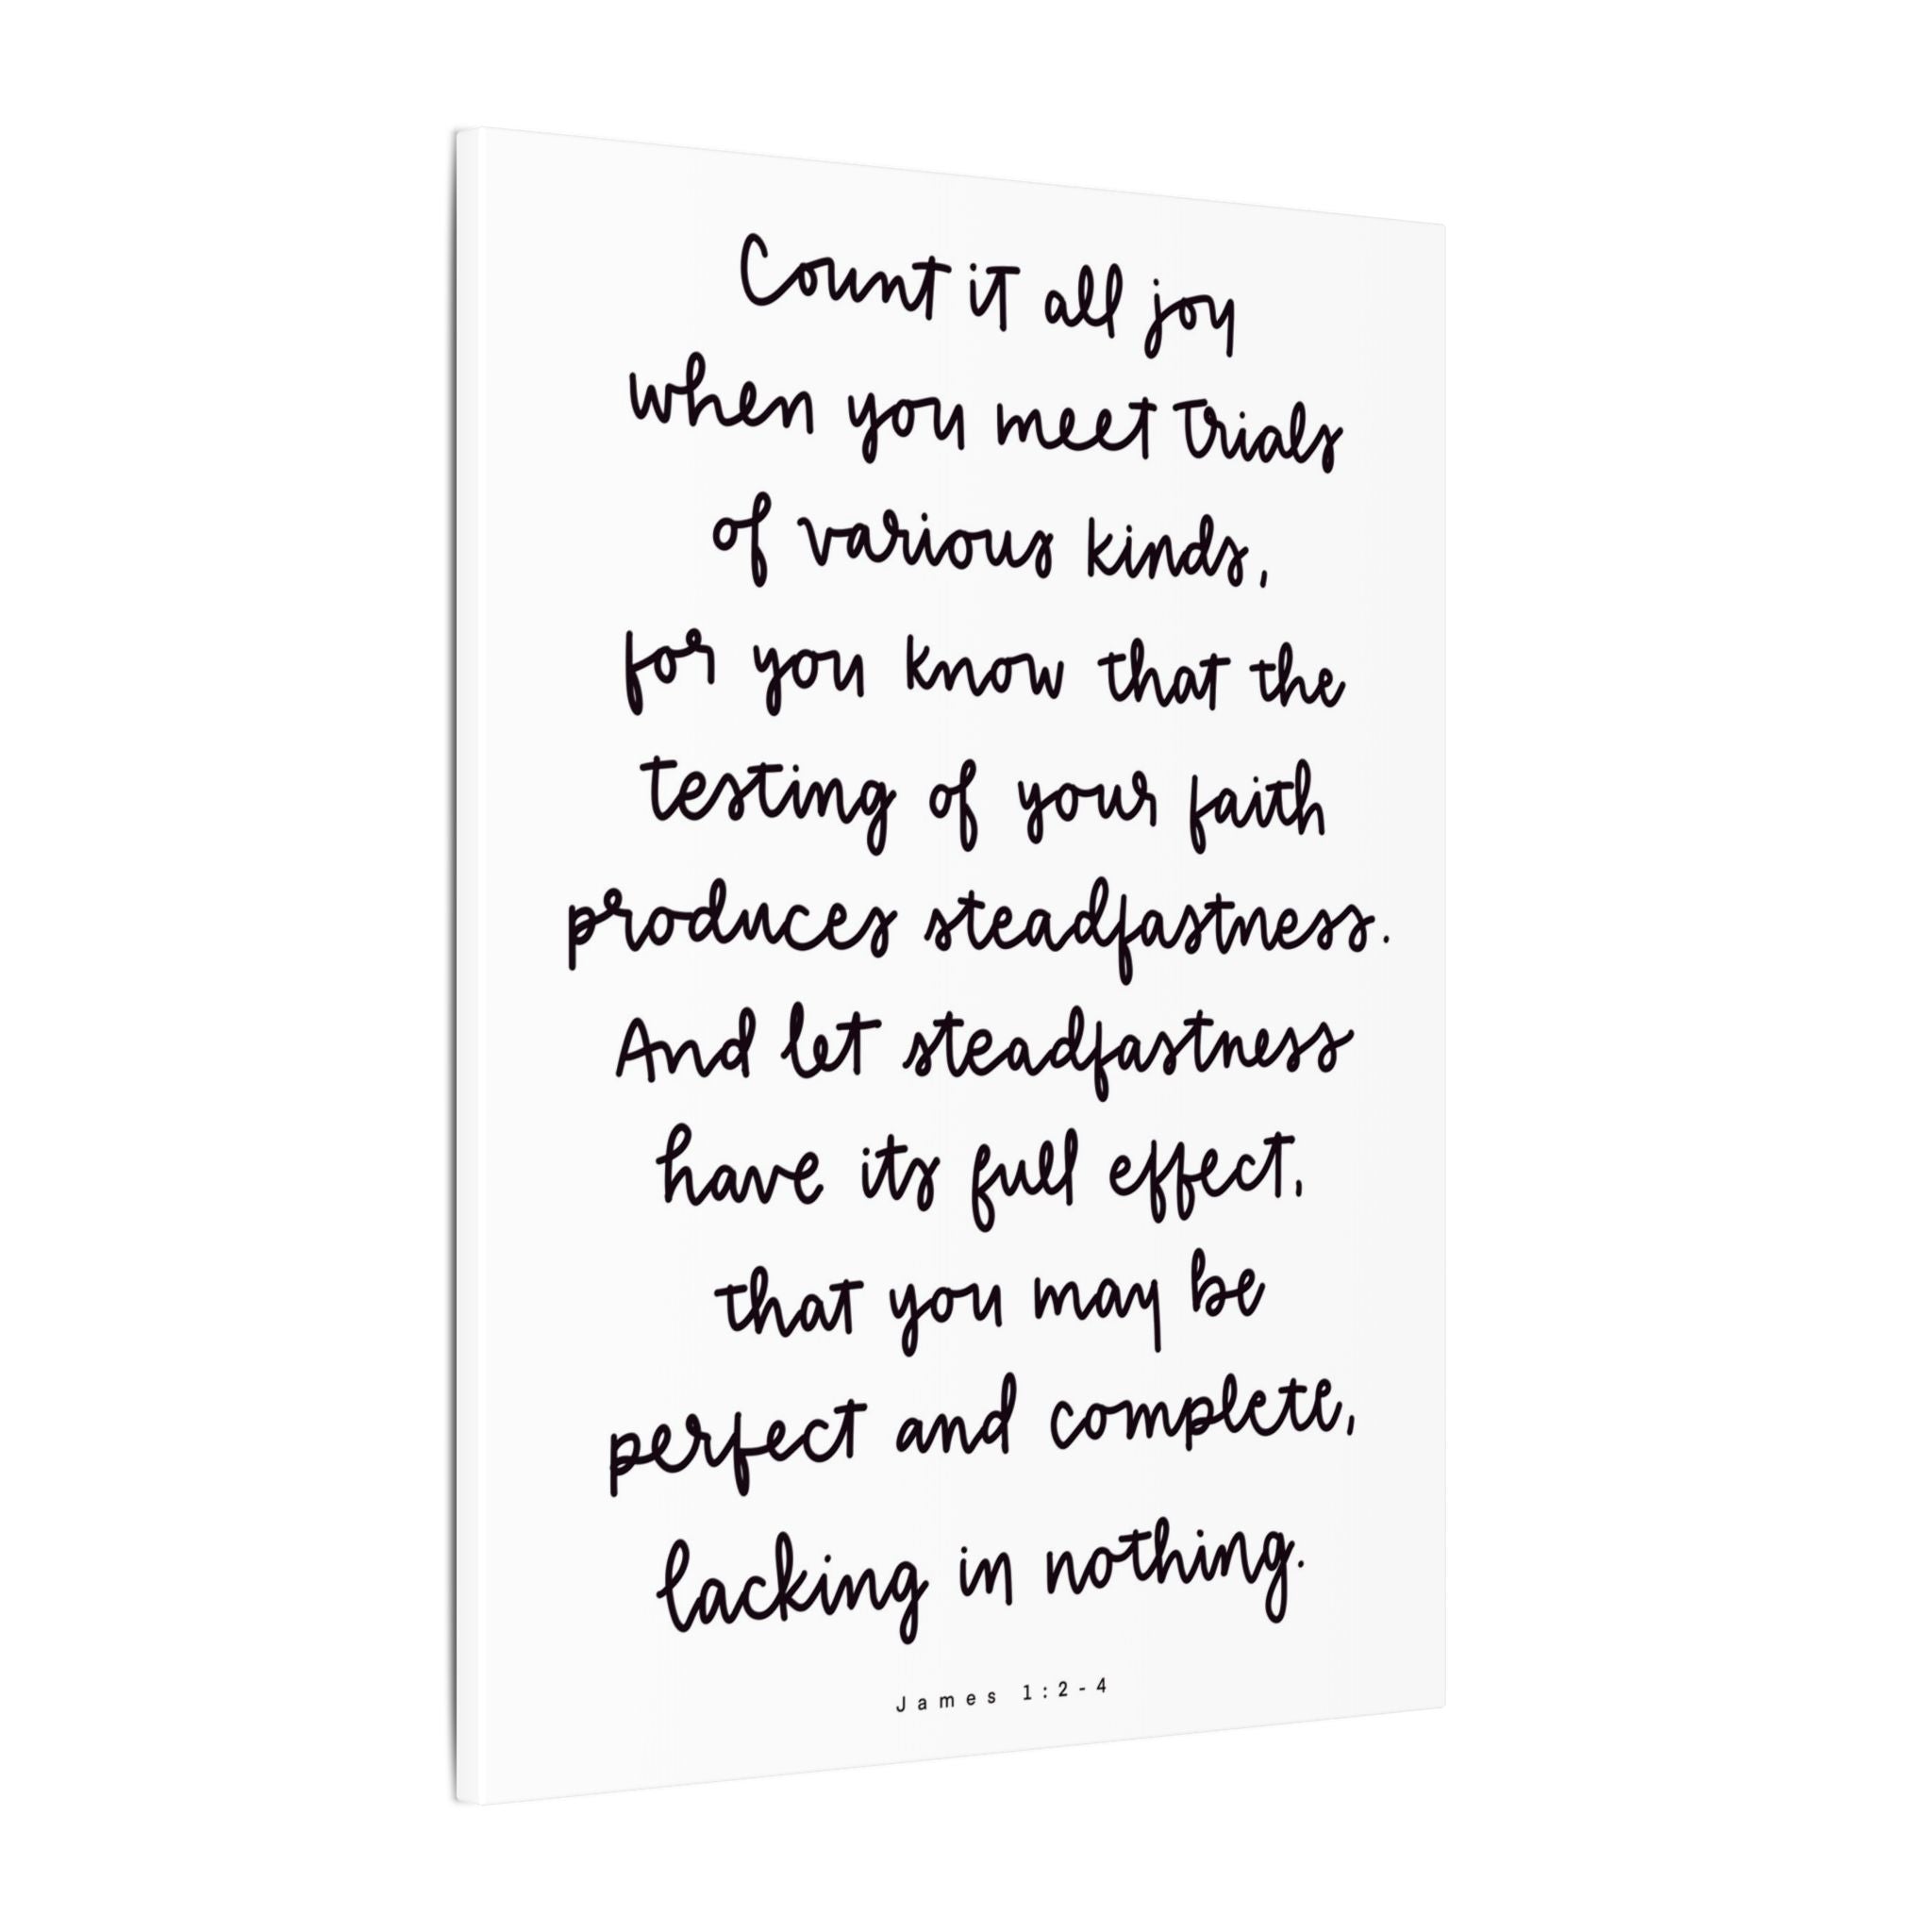 Count it all joy
when you meet trials
of various kinds,
for you know that the
testing of your faith
produces steadfastness.
And let steadfastness
have its full effect,
that you may be
perfect and complete,
lacking in nothing.
James 1:2-4